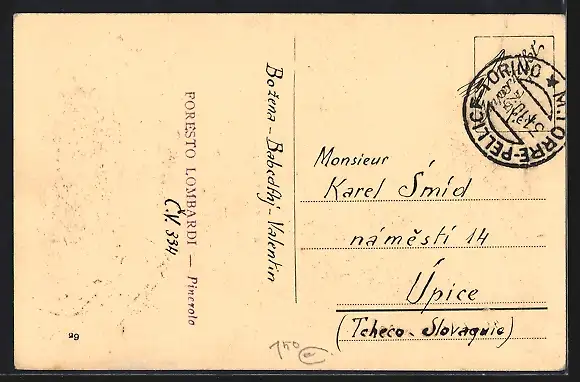 Božena - Babcdthj - Valentin
FORESTO LOMBARDI — Pinerolo
Č.V. 334
TORRE-PELLICE - TORINO
Monsieur
Karel Šmíd
náměstí 14
Úpice
(Tcheco-Slovaquie)
150
69